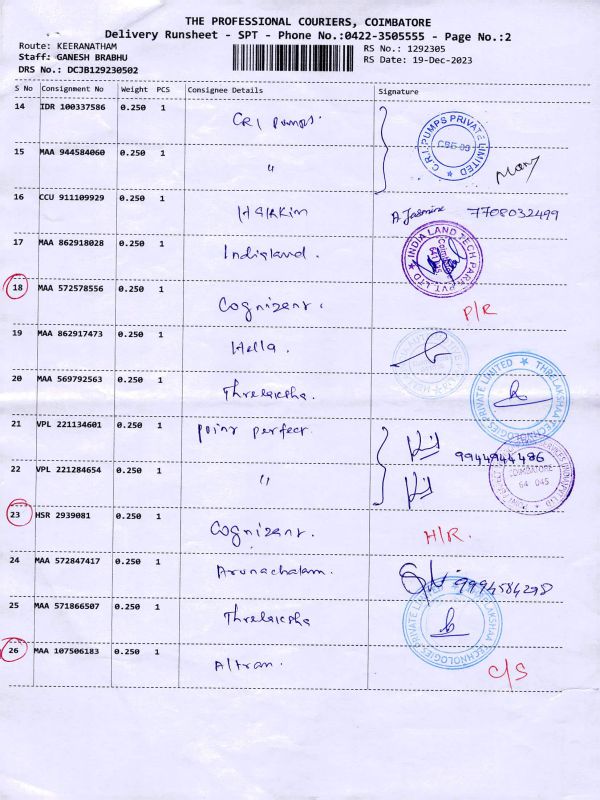 THE PROFESSIONAL COURIERS, COIMBATORE
Delivery Runsheet - SPT - Phone No.:0422-3505555 - Page No.:2
Route: KEERANATHAM
RS No.: 1292305
Staff: GANESH BRABHU
RS Date: 19-Dec-2023
DRS No.: DCJB129230502
S No Consignment No Weight PCS Consignee Details Signature
14 IDR 100337586 0.250 1 CRI Pumps.
C.R.I. PUMPS PRIVATE LIMITED
CBE-09
15 MAA 944584060 0.250 1 "
16 CCU 911109929 0.250 1 A. Jasmine 7708032499
17 MAA 862918028 0.250 1 Indialand.
INDIA LAND TECH PARK PVT. LTD
18 MAA 572578556 0.250 1 Cognizent. P/R
19 MAA 862917473 0.250 1 Hella.
20 MAA 569792563 0.250 1 Threlaksha
THRELAKSHAA TECHNOLOGIES PRIVATE LIMITED
21 VPL 221134601 0.250 1 point perfect 9944944486
22 VPL 221284654 0.250 1 "
COIMBATORE
64 045
23 HSR 2939081 0.250 1 Cognizent. H/R.
24 MAA 572847417 0.250 1 Arunachalam. 9994584298
25 MAA 571866507 0.250 1 Threlaksha
THRELAKSHAA TECHNOLOGIES PRIVATE LIMITED
26 MAA 107506183 0.250 1 Altran. C/S